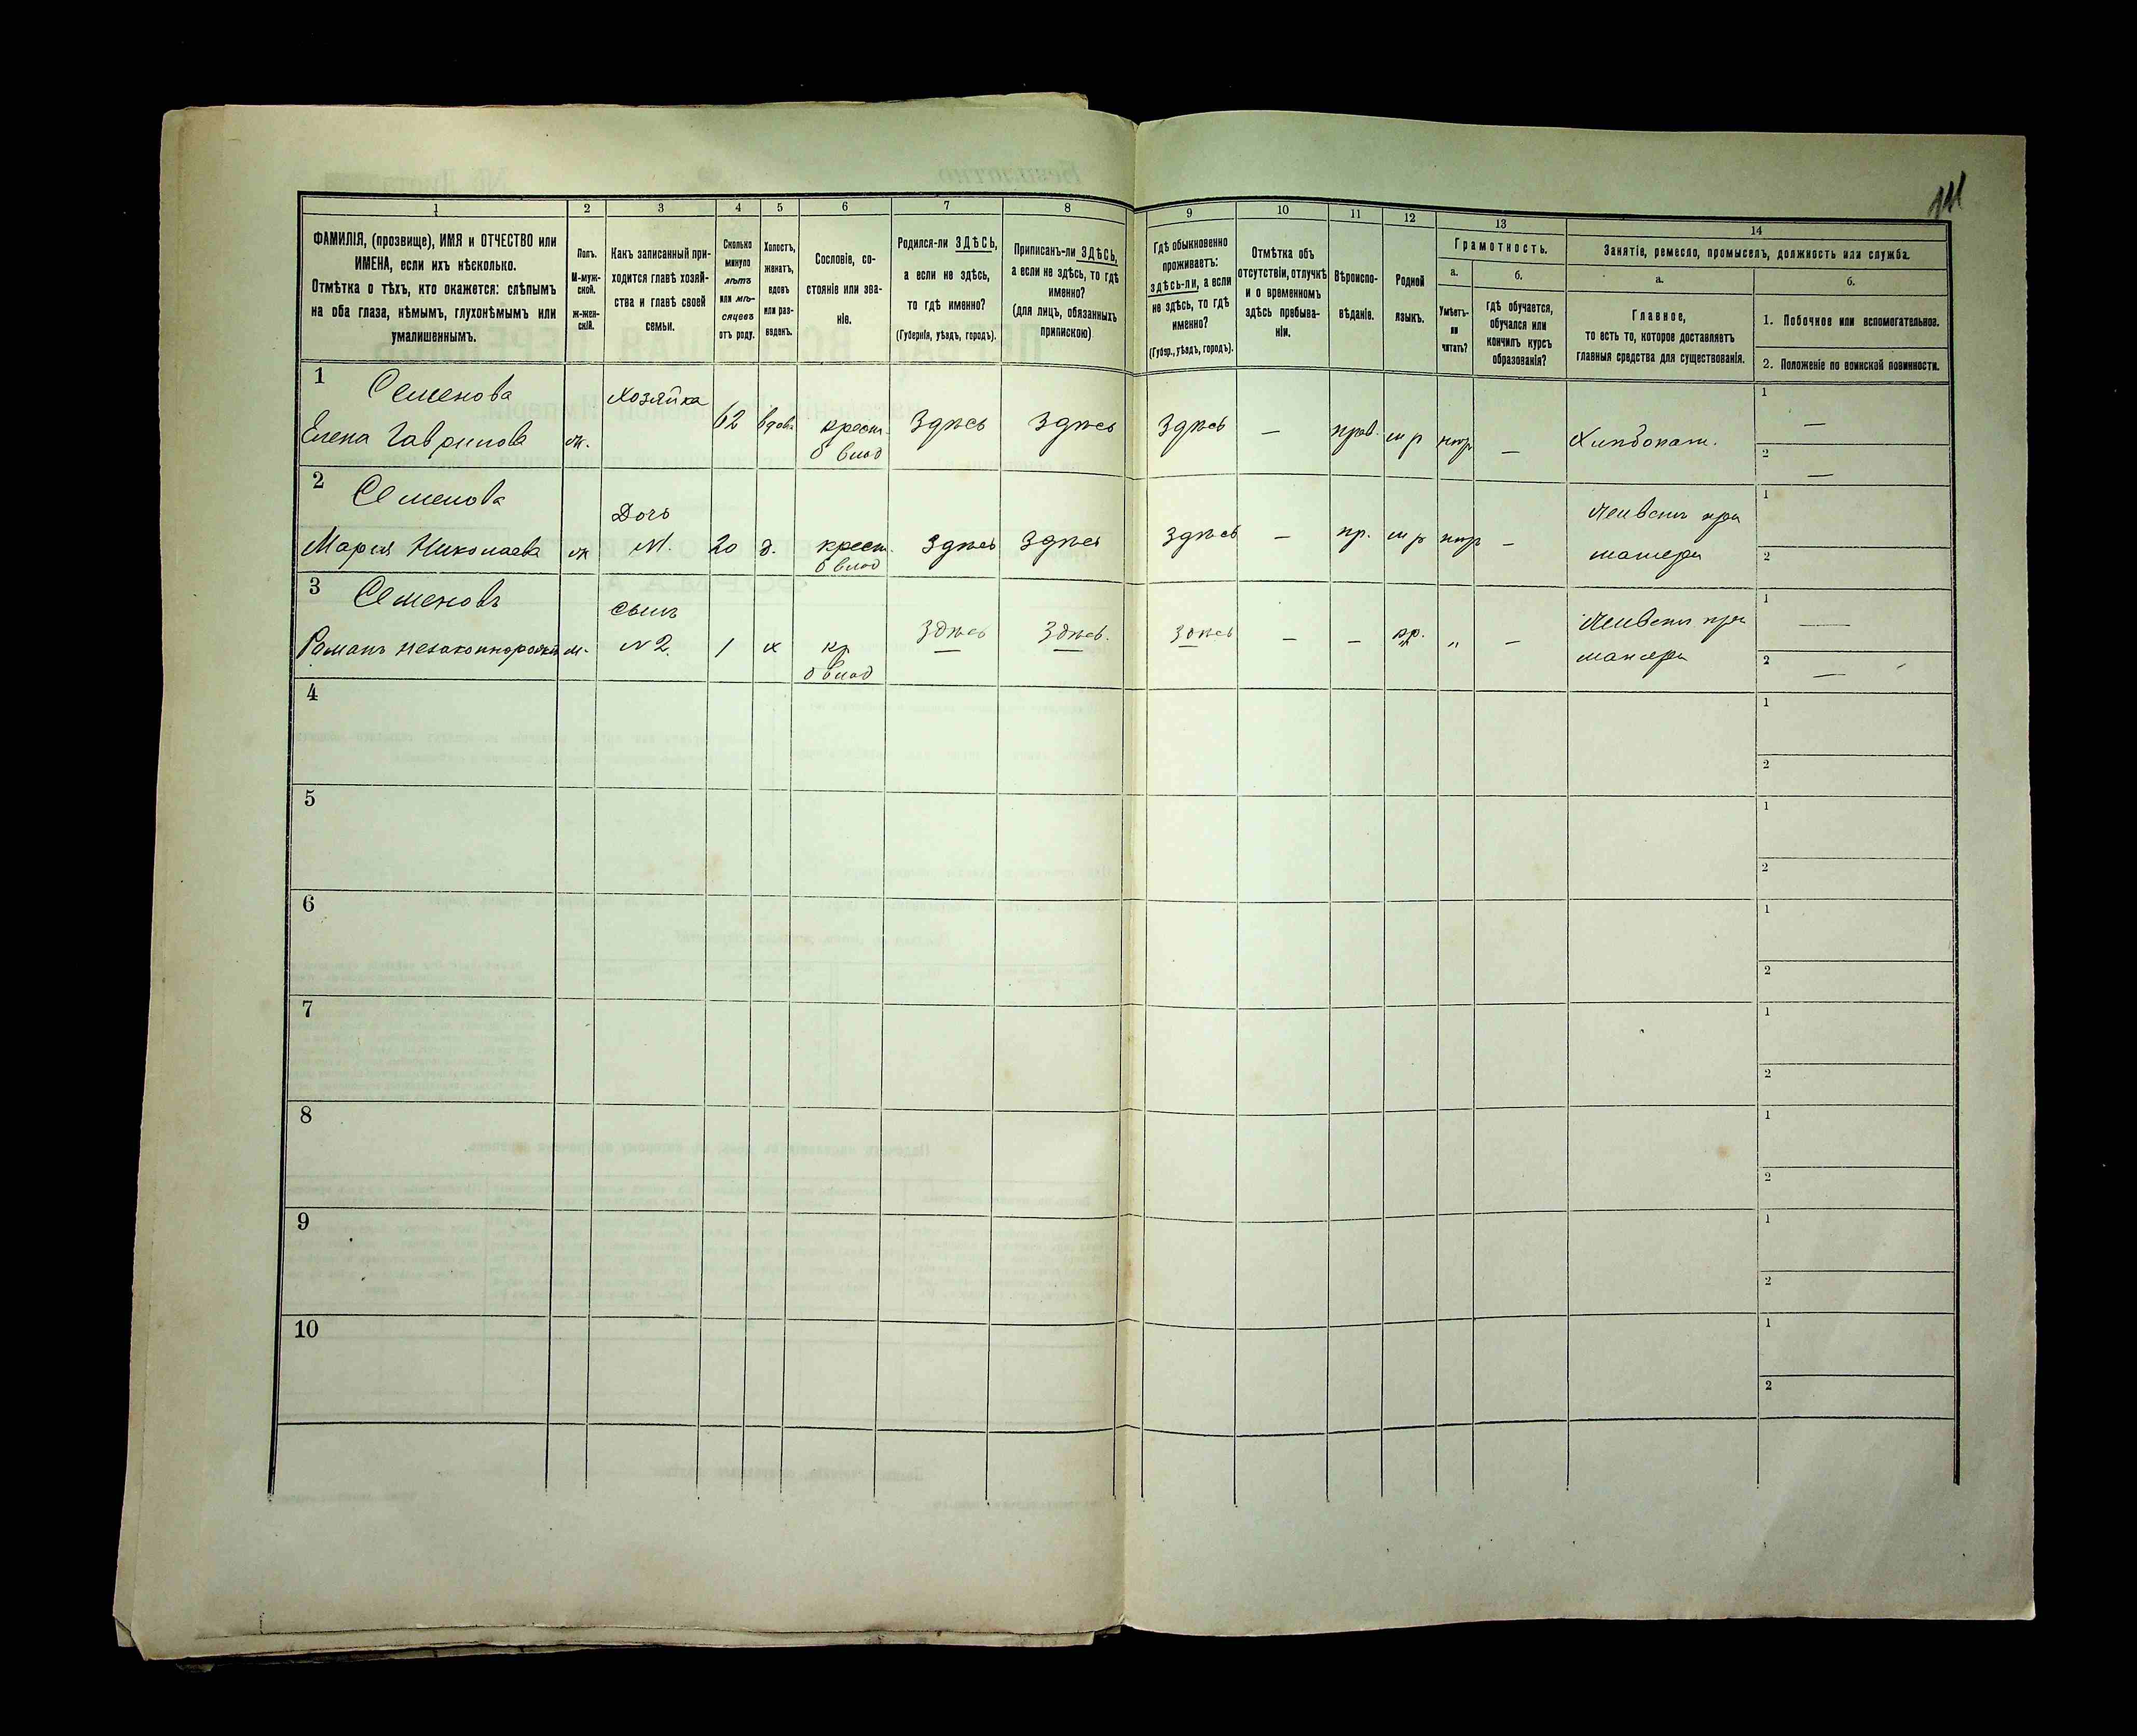 141
1
2
3
4
5
6
7
8
9
10
11
12
13
14
ФАМИЛІЯ, (прозвище), ИМЯ и ОТЧЕСТВО или
ИМЕНА, если ихъ нѣсколько.
Отмѣтка о тѣхъ, кто окажется: слѣпымъ
на оба глаза, нѣмымъ, глухонѣмымъ или
умалишеннымъ.
Полъ.
М-муж-
ской.
ж-жен-
скій.
Какъ записанный при-
ходится главѣ хозяй-
ства и главѣ своей
семьи.
Сколько
минуло
лѣтъ
или мѣ-
сяцевъ
отъ роду.
Холостъ,
женатъ,
вдовъ
или раз-
веденъ.
Сословіе, со-
стояніе или зва-
ніе.
Родился-ли ЗДѢСЬ,
а если не здѣсь,
то гдѣ именно?
(Губернія, уѣздъ, городъ).
Приписанъ-ли ЗДѢСЬ,
а если не здѣсь, то гдѣ
именно?
(для лицъ, обязанныхъ
припискою)
Гдѣ обыкновенно
проживаетъ:
здѣсь-ли, а если
не здѣсь, то гдѣ
именно?
(Губер., уѣздъ, городъ).
Отмѣтка объ
отсутствіи, отлучкѣ
и о временномъ
здѣсь пребыва-
ніи.
Вѣроиспо-
вѣданіе.
Родной
языкъ.
Грамотность.
а.
Умѣетъ-
ли
читать?
б.
гдѣ обучается,
обучался или
кончилъ курсъ
образованія?
Занятіе, ремесло, промыселъ, должность или служба.
а.
Главное,
то есть то, которое доставляетъ
главныя средства для существованія.
б.
1. Побочное или вспомогательное.
2. Положеніе по воинской повинности.
1 Семенова
Елена Гаврилова
ж.
Хозяйка
62
вдова
крестн.
б влад
Здѣсь
Здѣсь
Здѣсь
—
прав.
нѣтъ
—
Хлѣбопаш.
1 —
2 —
2 Семенова
Марія Николаева
ж
Дочь
№1.
20
д.
крест.
б влад
Здѣсь
Здѣсь
Здѣсь
—
пр.
нѣтъ
—
Живетъ при
матери
1
2
3 Семеновъ
Романъ незаконнорожд
м.
сынъ
№2.
1
х
кр
б влад
Здѣсь
Здѣсь.
Здѣсь
—
—
„
—
Живетъ при
матери
1 —
2 —
4
1
2
5
1
2
6
1
2
7
1
2
8
1
2
9
1
2
10
1
2